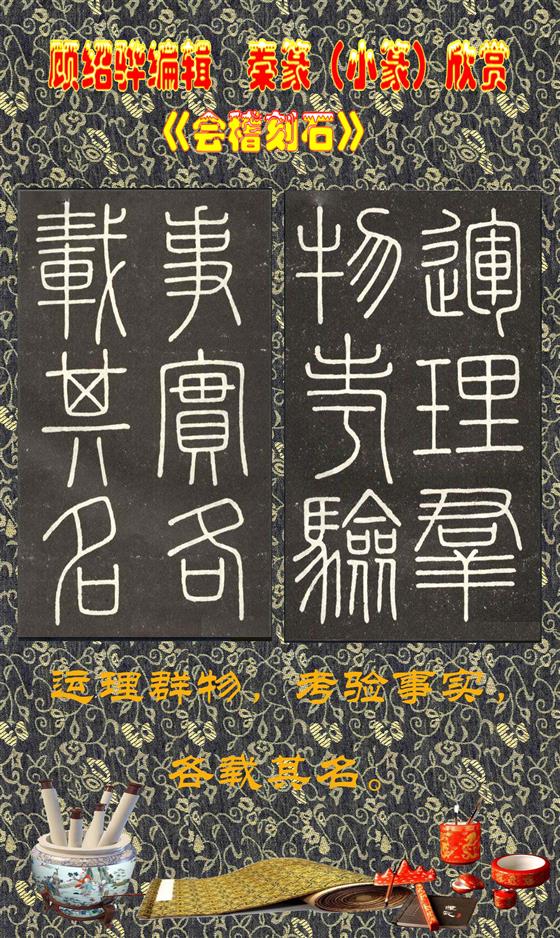 顾绍骅编辑 秦篆（小篆）欣赏
《会稽刻石》
運理羣
物考驗
事實各
載其名
运理群物，考验事实，
各载其名。